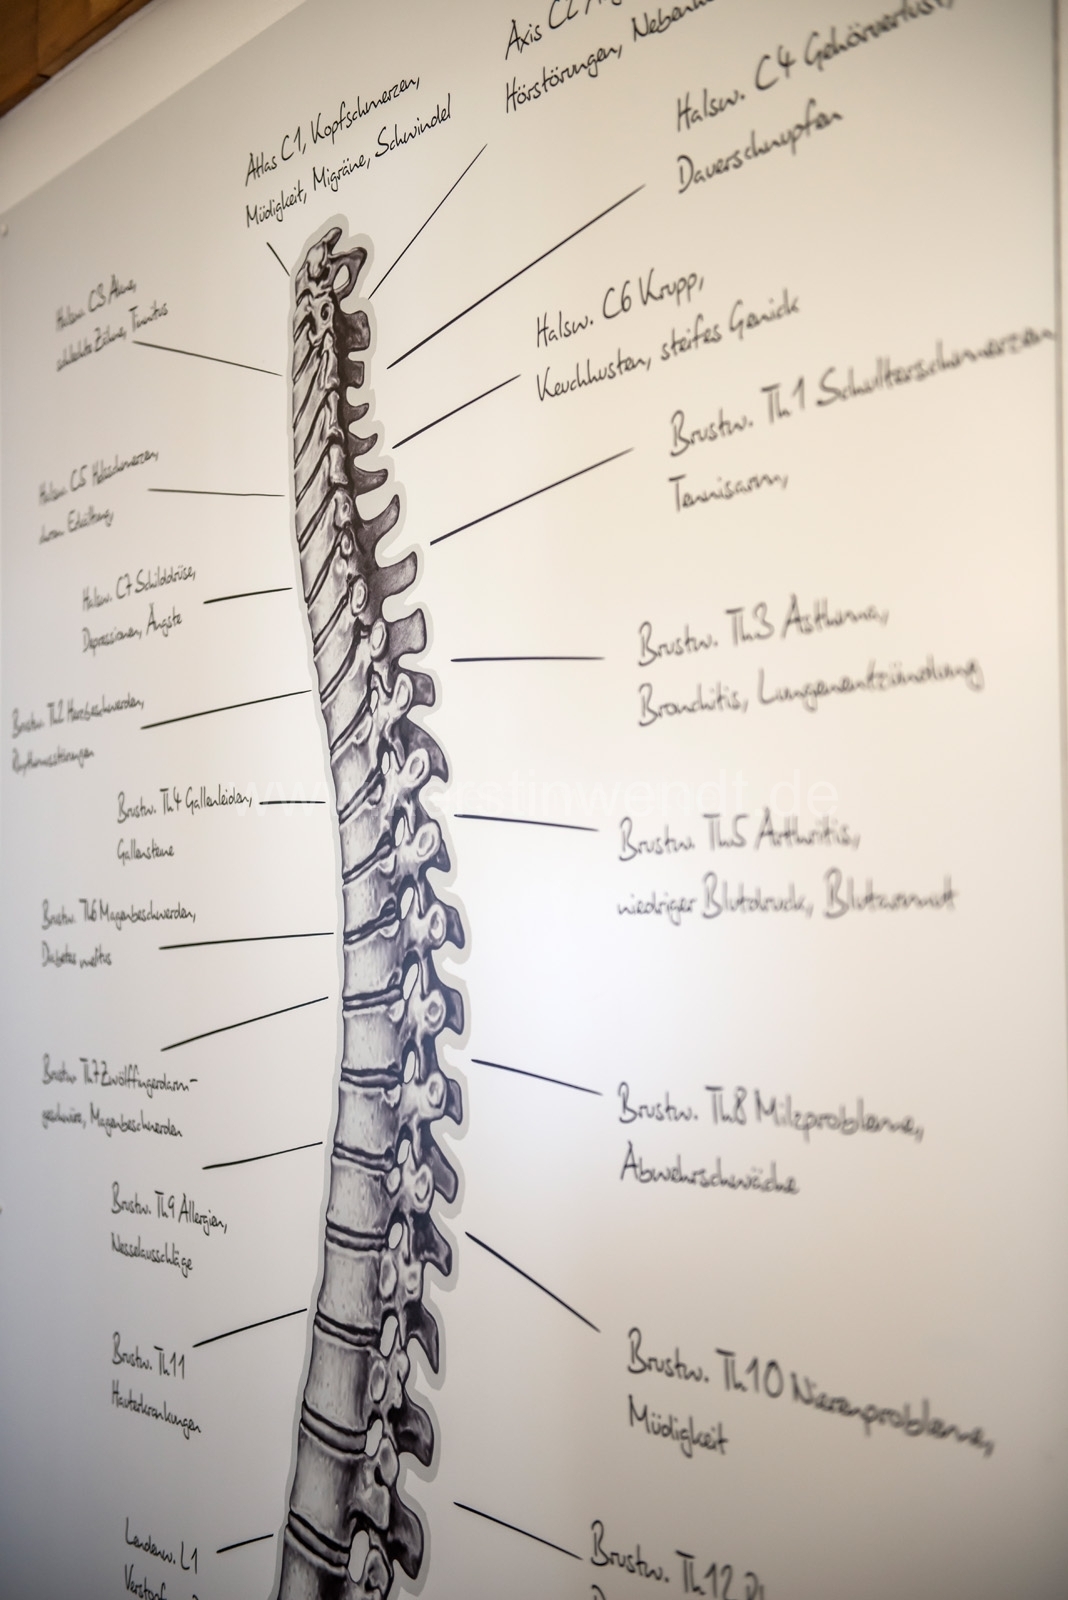 Axis C2
Hörstörungen,
Atlas C1, Kopfschmerzen,
Müdigkeit, Migräne, Schwindel
Halsw. C4 Gehörverlust,
Dauerschnupfen
Halsw. C3 Akne,
schlechte Zähne, Tinnitus
Halsw. C6 Krupp,
Keuchhusten, steifes Genick
Brustw. Th1 Schulterschmerzen
Tennisarm,
Halsw. C5 Halsschmerzen,
Halsw. C7 Schilddrüse,
Depressionen, Ängste
Brustw. Th3 Asthma,
Bronchitis, Lungenentzündung
Brustw. Th2 Herzbeschwerden,
Rhythmusstörungen
Brustw. Th4 Gallenleiden,
Gallensteine
Brustw. Th5 Arthritis,
niedriger Blutdruck, Blutarmut
Brustw. Th6 Magenbeschwerden,
Diabetes
Brustw. Th7 Zwölffingerdarm-
geschwüre, Magenbeschwerden
Brustw. Th8 Milzprobleme,
Abwehrschwäche
Brustw. Th9 Allergien,
Nesselausschläge
Brustw. Th10 Nierenprobleme,
Müdigkeit
Brustw. Th11
Hauterkrankungen
Lendenw. L1
Brustw. Th12